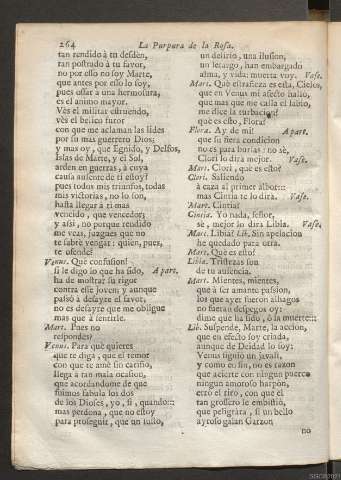 264 La Purpura de la Rosa.
tan rendido à tu desden,
tan postrado à tu favor,
no por esso no soy Marte,
que antes por esso lo soy,
pues ossar a una hermosura,
es el animo mayor.
Vès el militar estruendo,
vès el belico furor
con que me aclaman las lides
por su mas guerrero Dios;
y mas oy, que Egnido, y Delfos,
Islas de Marte, y el Sol,
arden en guerras, à cuya
causa ausente de ti estoy?
pues todos mis triunfos, todas
mis victorias, no lo son,
hasta llegar à ti mas
vencido, que vencedor;
y assi, no porque rendido
me veas, juzgues que no
te sabrè vengar: quien, pues,
te ofende?
Venus. Què confusion!
si le digo lo que ha sido, Aparte.
ha de mostrar su rigor
contra esse joven; y aunque
passò à desayre el favor,
no es desayre que me obligue
mas que à sentirle.
Mart. Pues no
respondes?
Venus. Para què quieres
que te diga, que el temor
con que te amè sin cariño,
llega à tan mala ocasion,
que acordandome de que
fuimos fabula los dos
de los Dioses, yo, si, quando:::
mas perdona, que no estoy
para proseguir, que un susto,
un delirio, una ilusion,
un letargo, han embargado
alma, y vida: muerta voy. Vase.
Mart. Què estrañeza es esta, Cielos,
que en Venus mi afecto hallò,
que mas que me calla el labio,
me dice la turbacion?
què es esto, Flora?
Flora. Ay de mi! Aparte.
que su fiera condicion
no es para burlas: no sè,
Clori lo dirà mejor. Vase.
Mart. Clori, què es esto?
Clori. Saliendo
à caza al primer albor:::
mas Cintia te lo dira. Vase.
Mart. Cintia?
Cintia. Yo nada, señor,
sè, mejor lo dirà Libia. Vase.
Mart. Libia? Lib. Sin apelacion
he quedado para otra.
Mart. Què es esto?
Libia. Tristezas son
de tu ausencia.
Mart. Mientes, mientes,
que à ser amante passion,
los que ayer fueron alhagos
no fueran despegos oy:
dime que ha sido, ò la muerte:::
Lib. Suspende, Marte, la accion,
que en efecto soy criada,
aunque de Deidad lo soy:
Venus siguiò un javalì,
y como en fin, no es razon
que acierte con ningun puerco
ningun amoroso harpon,
errò el tiro, con que el
tan grossero le embistiò,
que peligrára, si un bello
ayroso galan Garzon
no